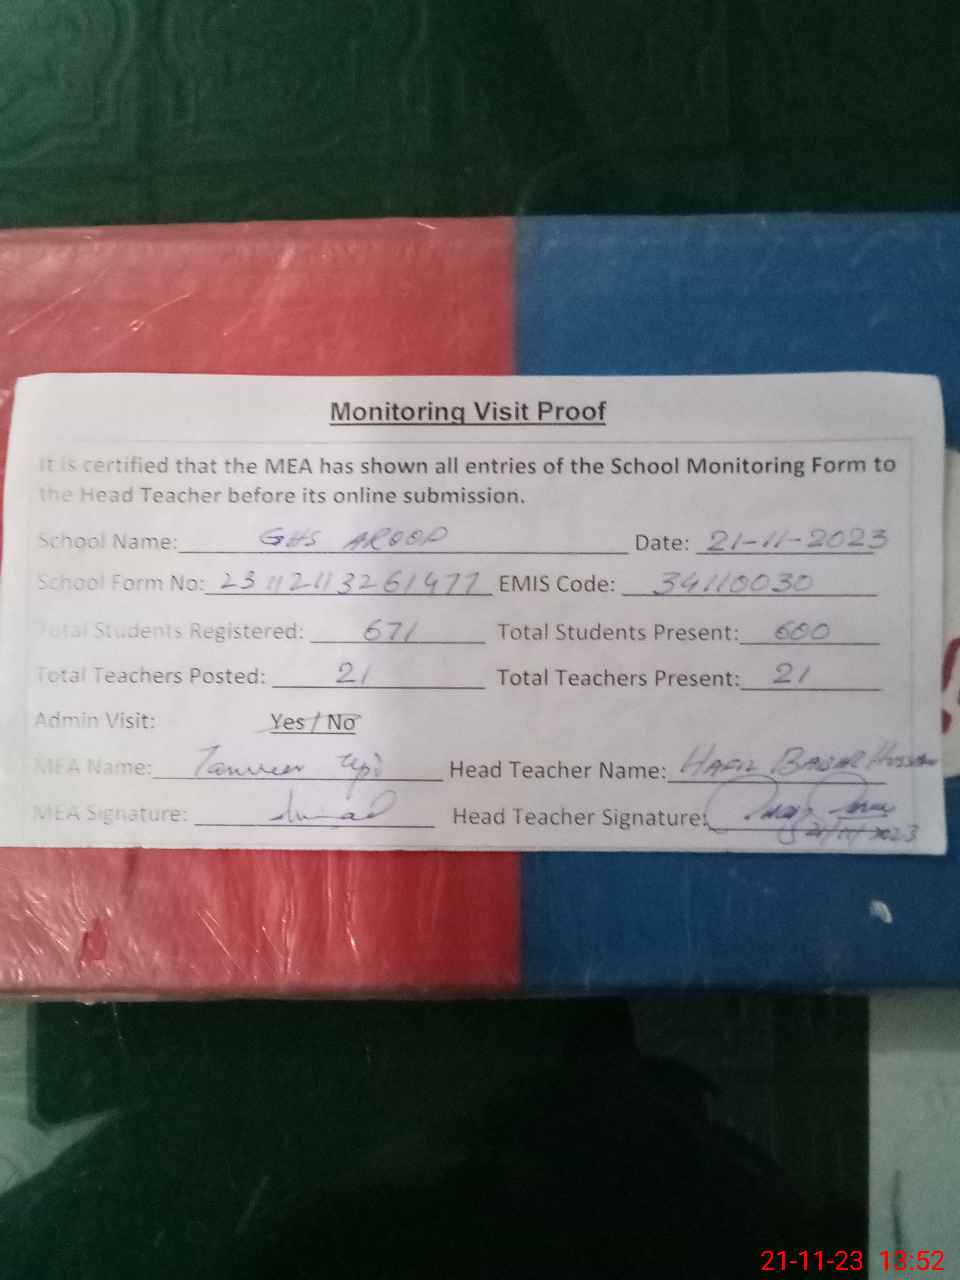 Monitoring Visit Proof
It is certified that the MEA has shown all entries of the School Monitoring Form to
the Head Teacher before its online submission.
School Name: GHS AROOP Date: 21-11-2023
School Form No: 23112113261477 EMIS Code: 34110030
Total Students Registered: 671 Total Students Present: 600
Total Teachers Posted: 21 Total Teachers Present: 21
Admin Visit: Yes / No
MEA Name: Tanveer Head Teacher Name: HAFIZ
MEA Signature: Head Teacher Signature:
21/11/2023
21-11-23 13:52